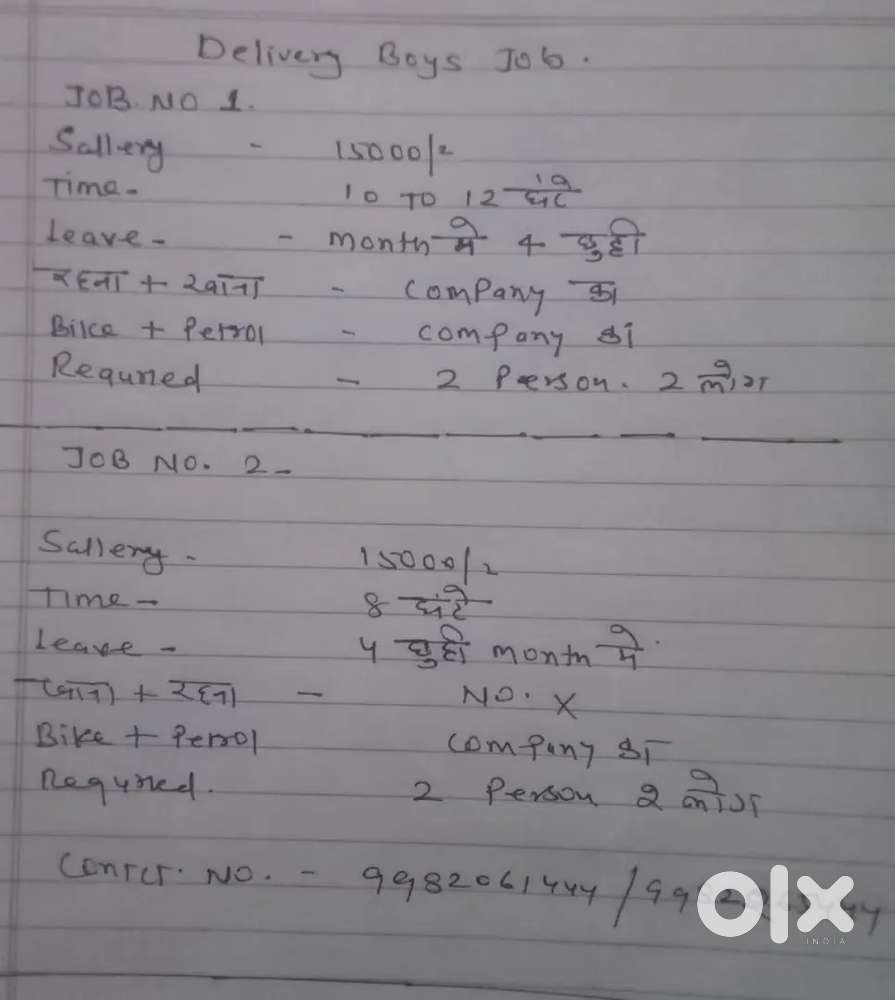 Delivery Boys Job.
JOB NO 1.
Sallery - 15000/=
Time- 10 TO 12 घंटे
Leave - - month मे 4 छुट्टी
रहना + खाना - company का
Bike + Petrol - company का
Requried - 2 Person. 2 लोग
JOB NO. 2-
Sallery - 15000/=
Time - 8 घंटे
Leave - 4 छुट्टी month मे
खाना + रहना - NO. X
Bike + Petrol company का
Requried. 2 Person 2 लोग
Contct. NO. - 9982061444 /
olx
INDIA